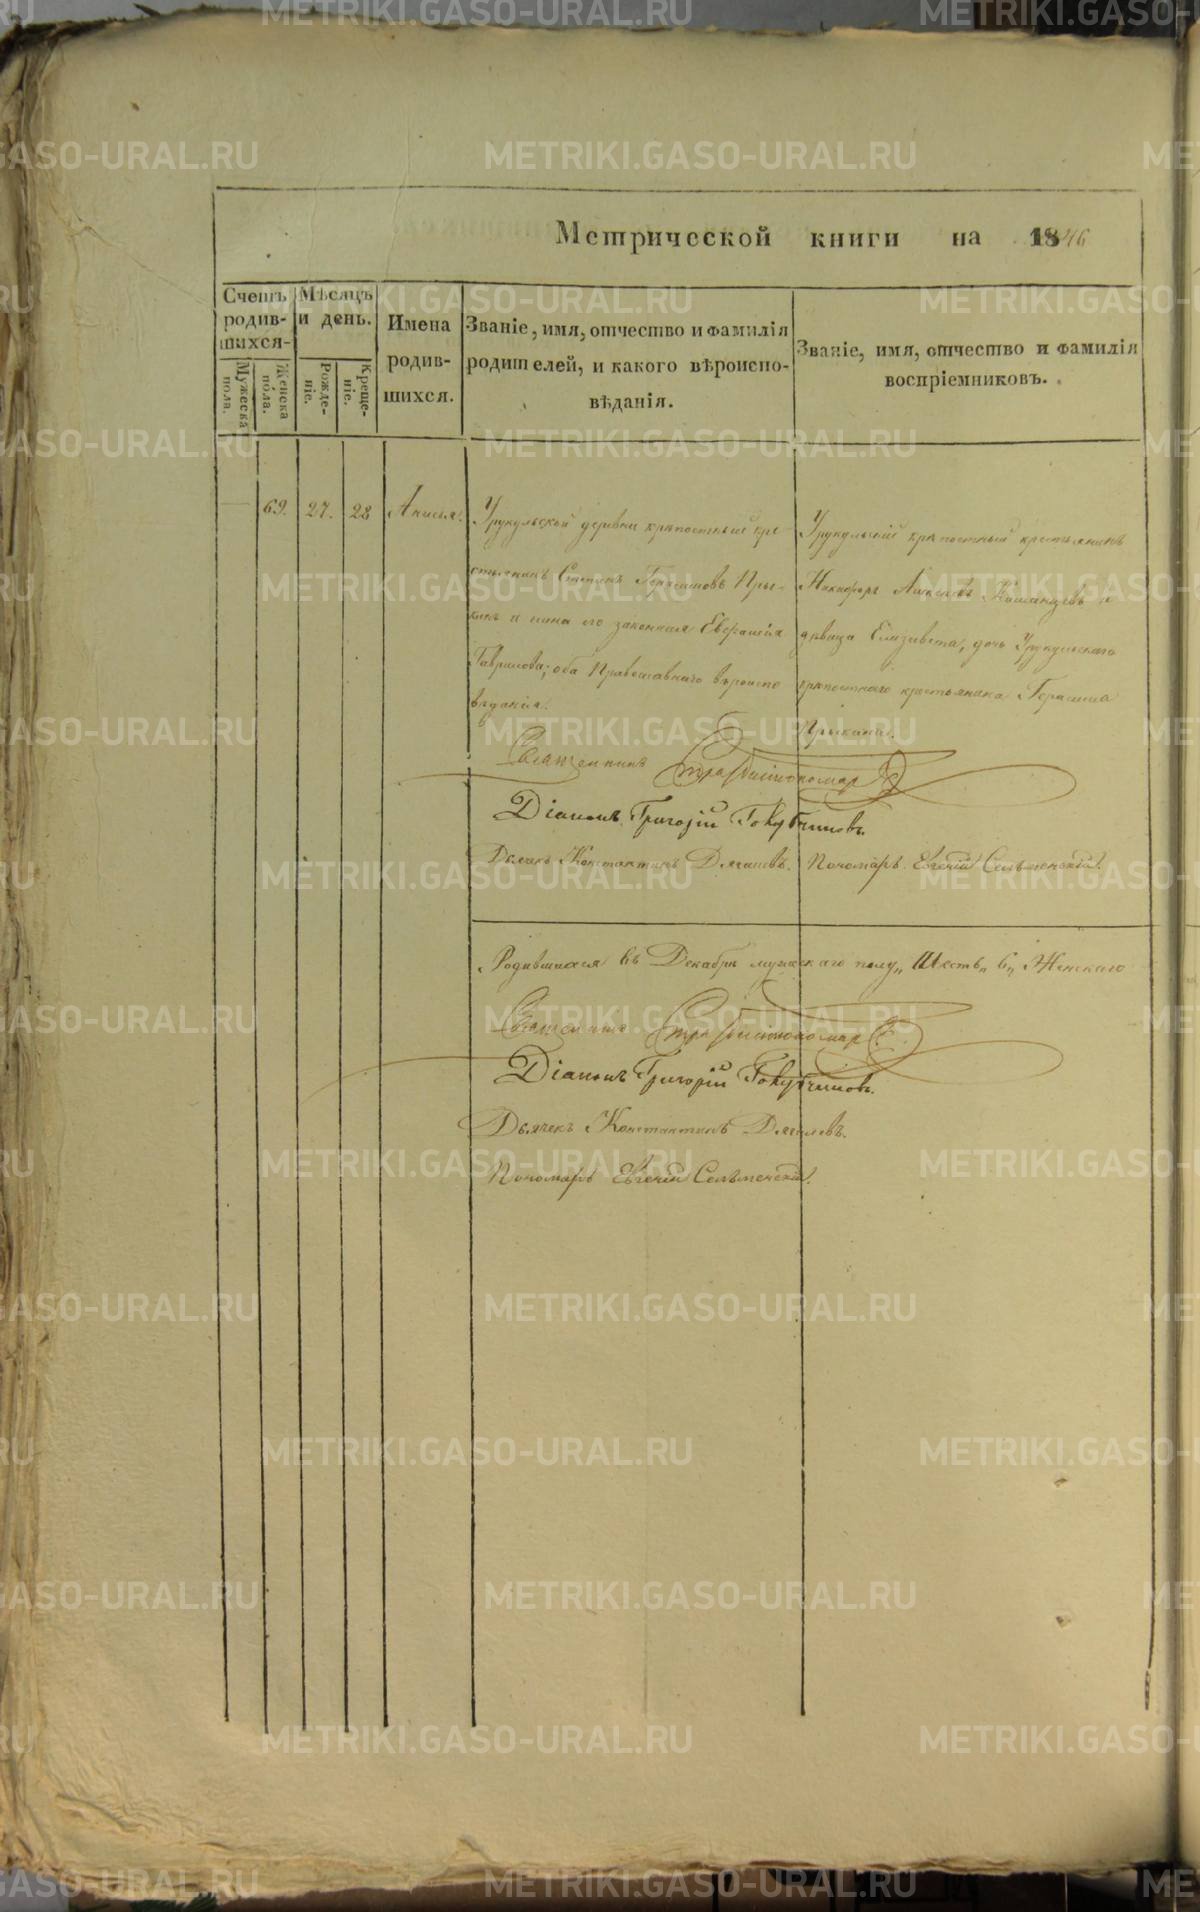 Метрической книги на 1846
Счетъ родив-шихся-
Мѣсяцъ и день.
Мужеска пола.
Женска пола.
Рожде-ніе.
Креще-ніе.
Имена родив-шихся.
Званіе, имя, отчество и фамилія
родителей, и какого вѣроиспо-
вѣданія.
Званіе, имя, отчество и фамилія
воспріемниковъ.
69.
27.
28
Анисья.
Урукульской деревни крѣпостный кре-
стьянинъ Степанъ Герасимовъ Пры-
кинъ и жена его законная Евфрасия
Гаврилова; оба Православнаго вѣроиспо
вѣданія.
Урукульскій крѣпостный крестьянинъ
Никифоръ
и
дѣвица Елизавета, дочь Урукульскаго
крѣпостнаго крестьянина Герасима
Прыкина.
Священникъ
Діаконъ Григорій
Дьячекъ Константинъ Дягилевъ. Пономарь Евгеній
Родившихся въ Декабрѣ мужескаго полу „Шесть„ 6„ Женскаго
Священникъ
Діаконъ Григорій
Дьячекъ Константинъ Дягилевъ.
Пономарь Евгеній
METRIKI.GASO-URAL.RU